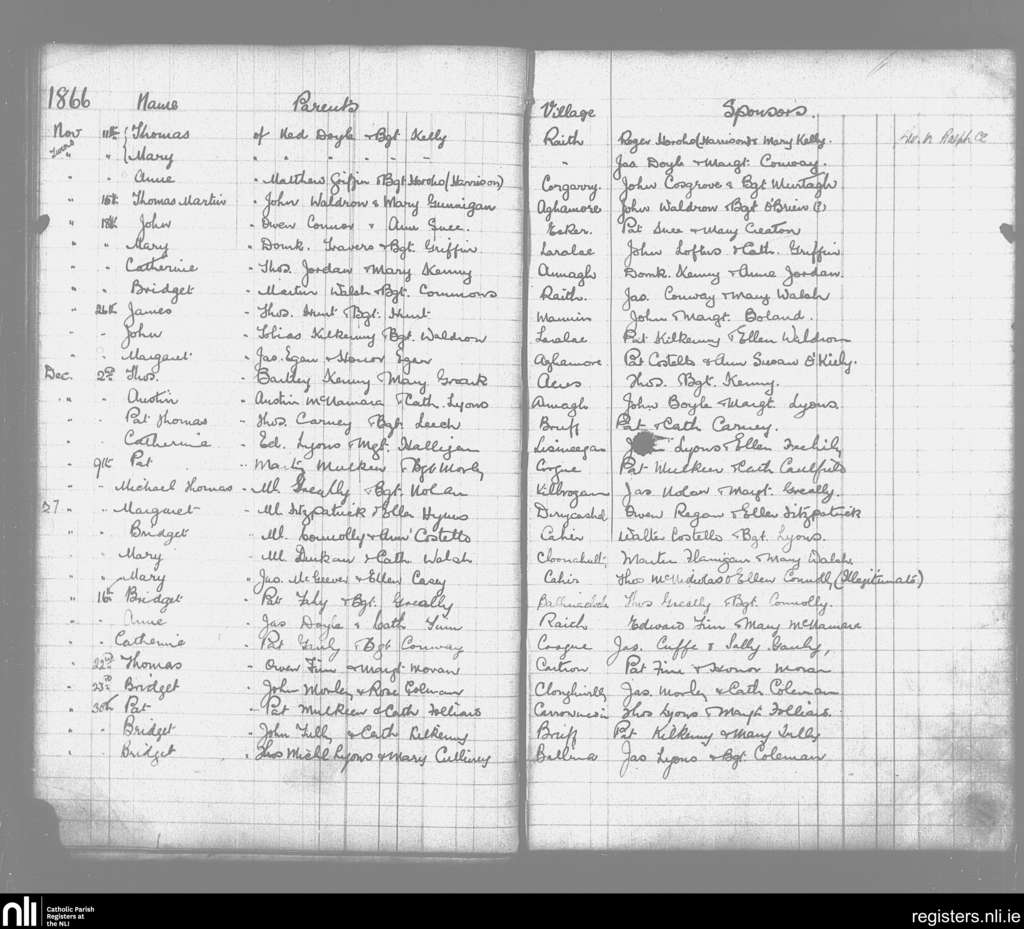 1866 Name Parents Village Sponsors.
Nov 11th Thomas of Ned Doyle & Bgt Kelly Raith Roger Horoho (Harrison) & Mary Kelly.
Twins " " Mary " " " - - - " Jas Doyle & Margt. Conway.
" " Anne " Matthew Griffin & Bgt Horoho (Harrison) Corgarry. John Cosgrove & Bgt Murtagh
" 15th Thomas Martin " John Waldron & Mary Gunnigan Aghamore John Waldron & Bgt O'Brien
" 18th John " Owen Connor & Anne Snee. Esker. Pat Snee & Mary Creaton
" " Mary " Domk. Travers & Bgt. Griffin Laralae John Loftus & Cath. Griffin
" " Catherine - Thos. Jordan & Mary Kenny Annagh Domk. Kenny & Anne Jordan.
" " Bridget " Martin Walsh & Bgt. Commons Raith. Jas. Conway & Mary Walsh
" 26th James - Thos. Hunt & Bgt. Hunt Mannin John & Margt. Boland.
- - John - Tobias Kilkenny & Bgt. Waldron Laralae Pat Kilkenny & Ellen Waldron
- . Margaret - Jas. Egan & Honor Egan Aghamore Pat Costello & Ann Susan O'Kiely.
Dec. 2nd Thos. - Bartley Kenny & Mary Groark Acres Thos. & Bgt. Kenny.
" - Austin - Austin McNamara & Cath. Lyons Annagh John Boyle & Margt. Lyons.
" . Pat Thomas - Thos. Carney & Bgt. Leech Bruff Pat & Cath Carney.
" . Catherine - Ed. Lyons & Mgt. Halligan Lisineegan Lyons & Ellen
- 9th Pat " Martin Mulkeen & Bgt Morley Cogue Pat Mulkeen & Cath Caulfield
- - Michael Thomas - Ml. Greally & Bgt. Nolan Kilbrogan Jas Nolan & Margt. Greally.
27 " - Margaret - Ml Fitzpatrick & Ellen Hynes Derrycashel Owen Regan & Ellen Fitzpatrick
" - Bridget " Ml. Connolly & Ann Costello Caher Walter Costello & Bgt. Lyons.
" - Mary " Ml Durkan & Cath Walsh Martin Flanigan & Mary Walsh
" " Mary " Jas. McGreever & Ellen Casey Caher Thos McNicholas & Ellen Connolly (Illegitimate)
" 16th Bridget " Pat & Bgt. Greally Thos Greally & Bgt. Connolly.
" . Anne - Jas Doyle & Cath Finn Raith Edward Finn & Mary McNamara
- . Catherine - Pat & Bgt Conway Coogue Jas. Cuffe & Sally
. 22nd Thomas - Owen Finn & Margt Moran Cartron Pat Finn & Honor Moran
" 23rd Bridget - John Morley & Rose Coleman Jas. Morley & Cath Coleman
" 30th Pat - Pat Mulkeen & Cath Folliard Thos Lyons & Margt Folliard.
. . Bridget - John Tully & Cath Kilkenny Bruff Pat Kilkenny & Mary Tully
. . Bridget " Thos Michl Lyons & Mary Culliney Ballina Jas Lyons & Bgt. Coleman
nli Catholic Parish
Registers at
the NLI
registers.nli.ie